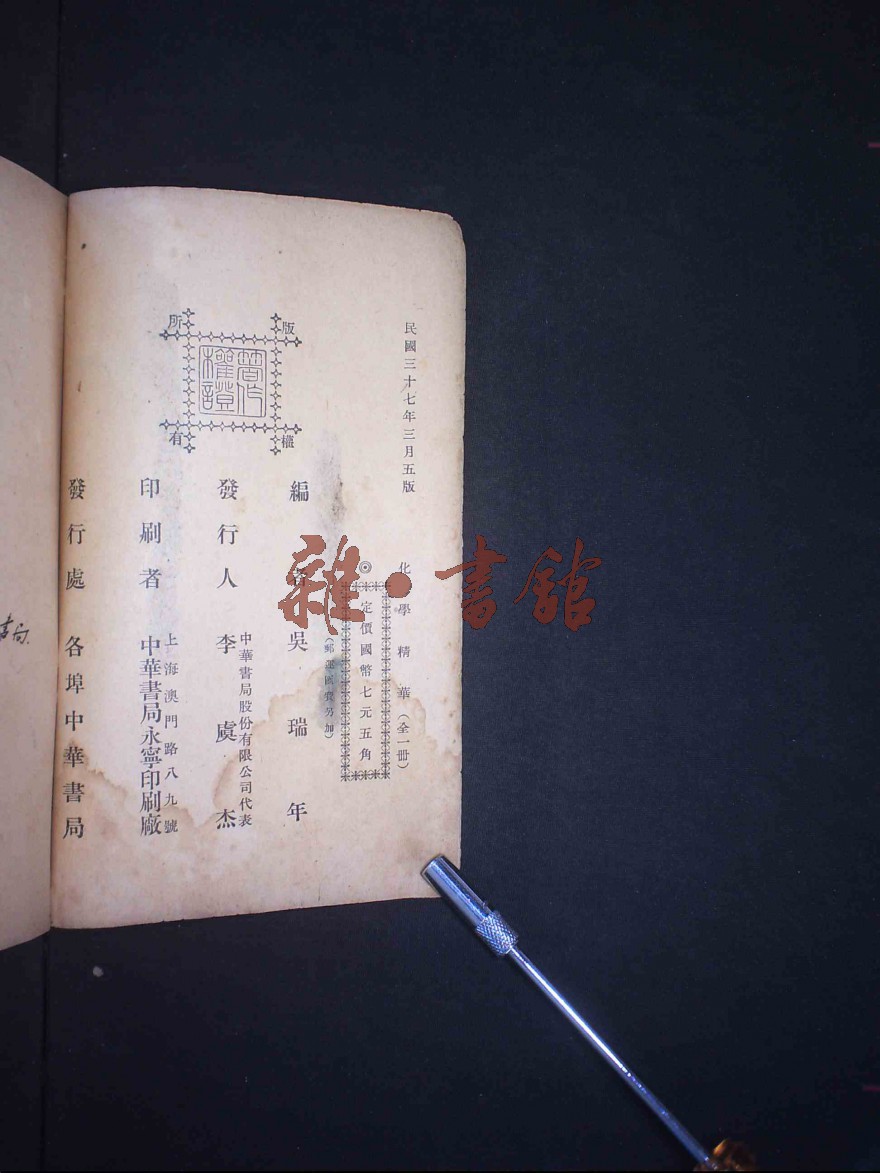 民國三十七年三月五版
化學精華（全一冊）
◎定價國幣七元五角
（郵運匯費另加）
編者 吳瑞年
中華書局股份有限公司代表
發行人 李虞杰
上海澳門路八九號
印刷者 中華書局永寧印刷廠
發行處 各埠中華書局
版權所有
著作權證
雜·書館
書局